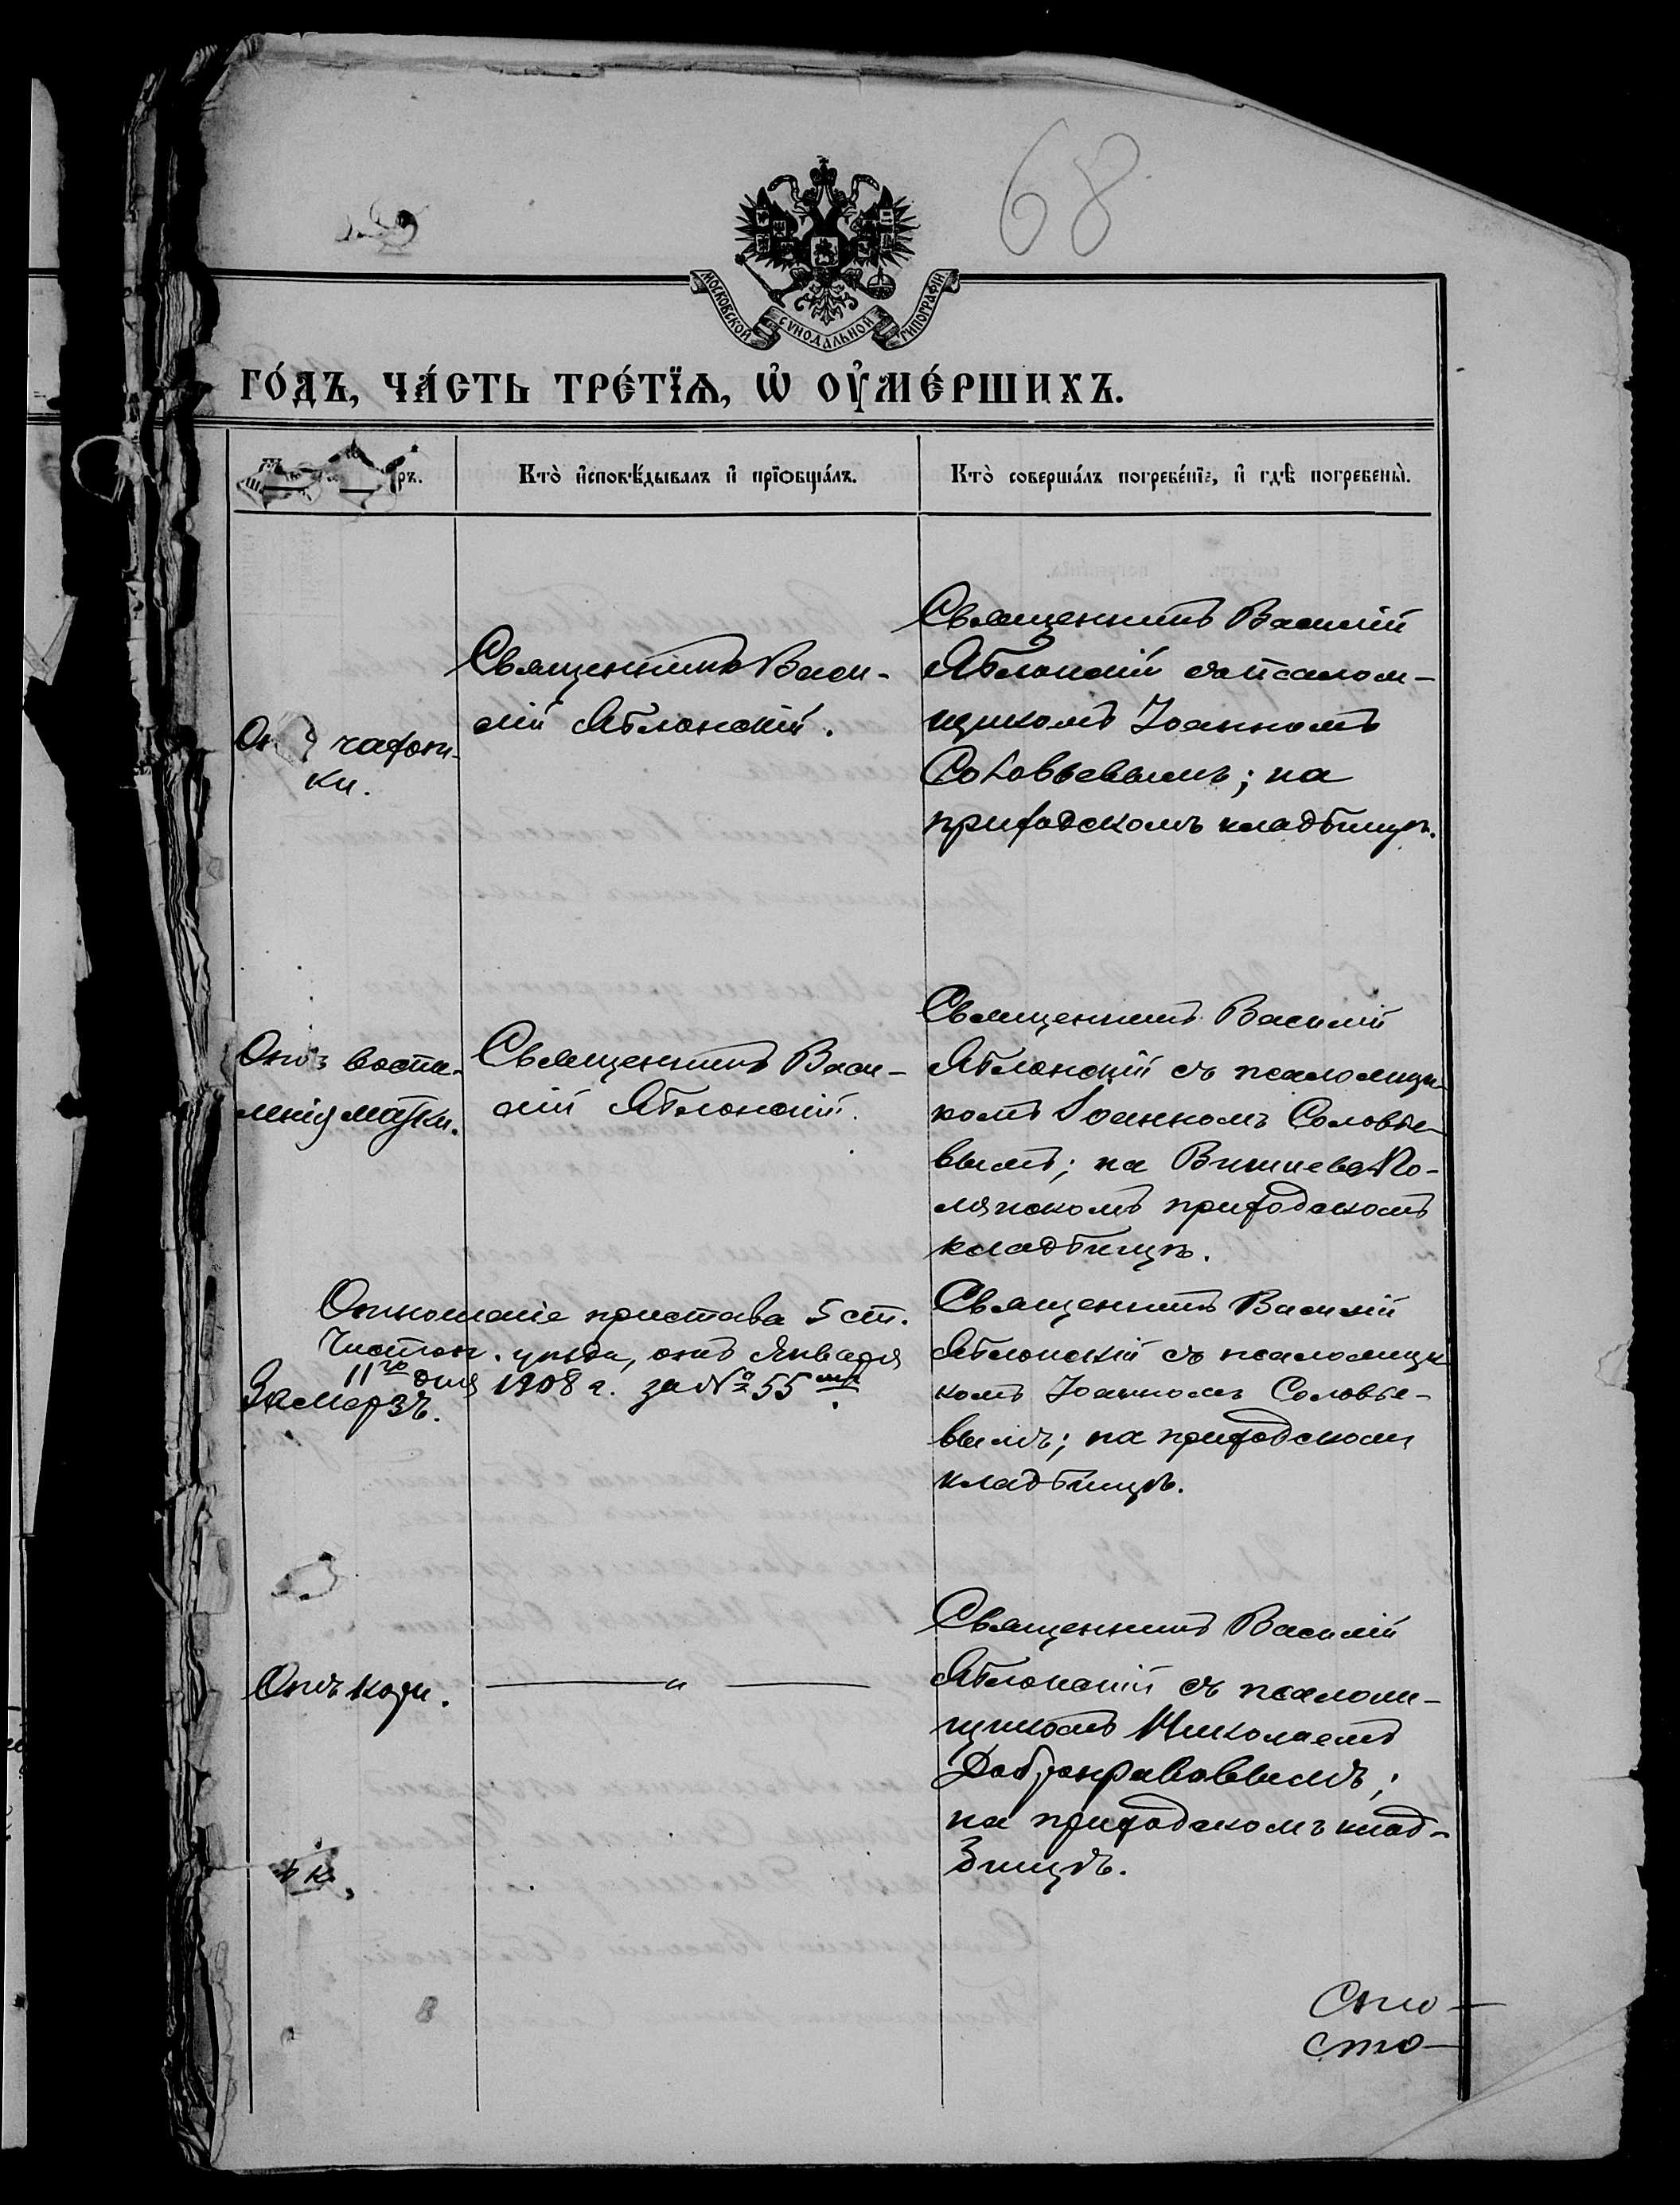 68
МОСКОВСКОЙ СУНОДАЛЬНОЙ ТИПОГРАФІИ
ГО́ДЪ, ЧА́СТЬ ТРЕ́ТЇѦ, Ѡ҆ ОУ҆МЕ́РШИХЪ.
Кто̀ и҆сповѣ́дывалъ и҆ прїѡбща́лъ.
Кто̀ соверша́лъ погребе́нїе, и҆ гдѣ̀ погребены̀.
чахот-
ки.
Священникъ Васи-
лій Яблонскій.
Священникъ Василій
Яблонскій съ псалом-
щикомъ Іоанномъ
Соловьевымъ; на
приходскомъ кладбищѣ.
Отъ воспа-
ленія матки.
Священникъ Васи-
лій Яблонскій.
Священникъ Василій
Яблонскій съ псаломщи-
комъ Іоанномъ Соловье-
вымъ; на Вишнево По-
лянскомъ приходскомъ
кладбищѣ.
Отношеніе пристава 5 ст.
Чистоп. уѣзда, отъ Января
11го дня 1908 г. за № 55
Замерзъ.
Священникъ Василій
Яблонскій съ псаломщи-
комъ Іоанномъ Соловье-
вымъ; на приходскомъ
кладбищѣ.
Отъ кори.
— " —
Священникъ Василій
Яблонскій съ псалом-
щикомъ Николаемъ
Добронравовымъ;
на приходскомъ клад-
бищѣ.